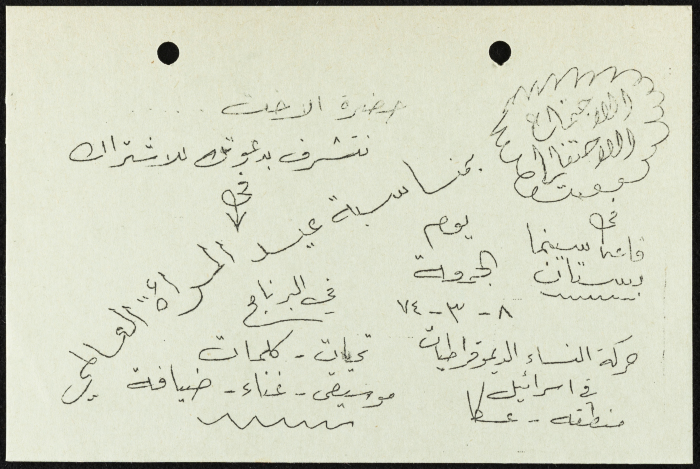 حضرة الاخت .....
نتشرف بدعوتك للاشتراك
في
بمناسبة عيد المرأة العالمي
في
قاعة سينما
بستان
يوم
الجمعة
٨ - ٣ - ٧٤
في البرنامج
تحيات - كلمات
موسيقى - غناء - ضيافة
حركة النساء الديموقراطيات
في اسرائيل
منطقة - عكا